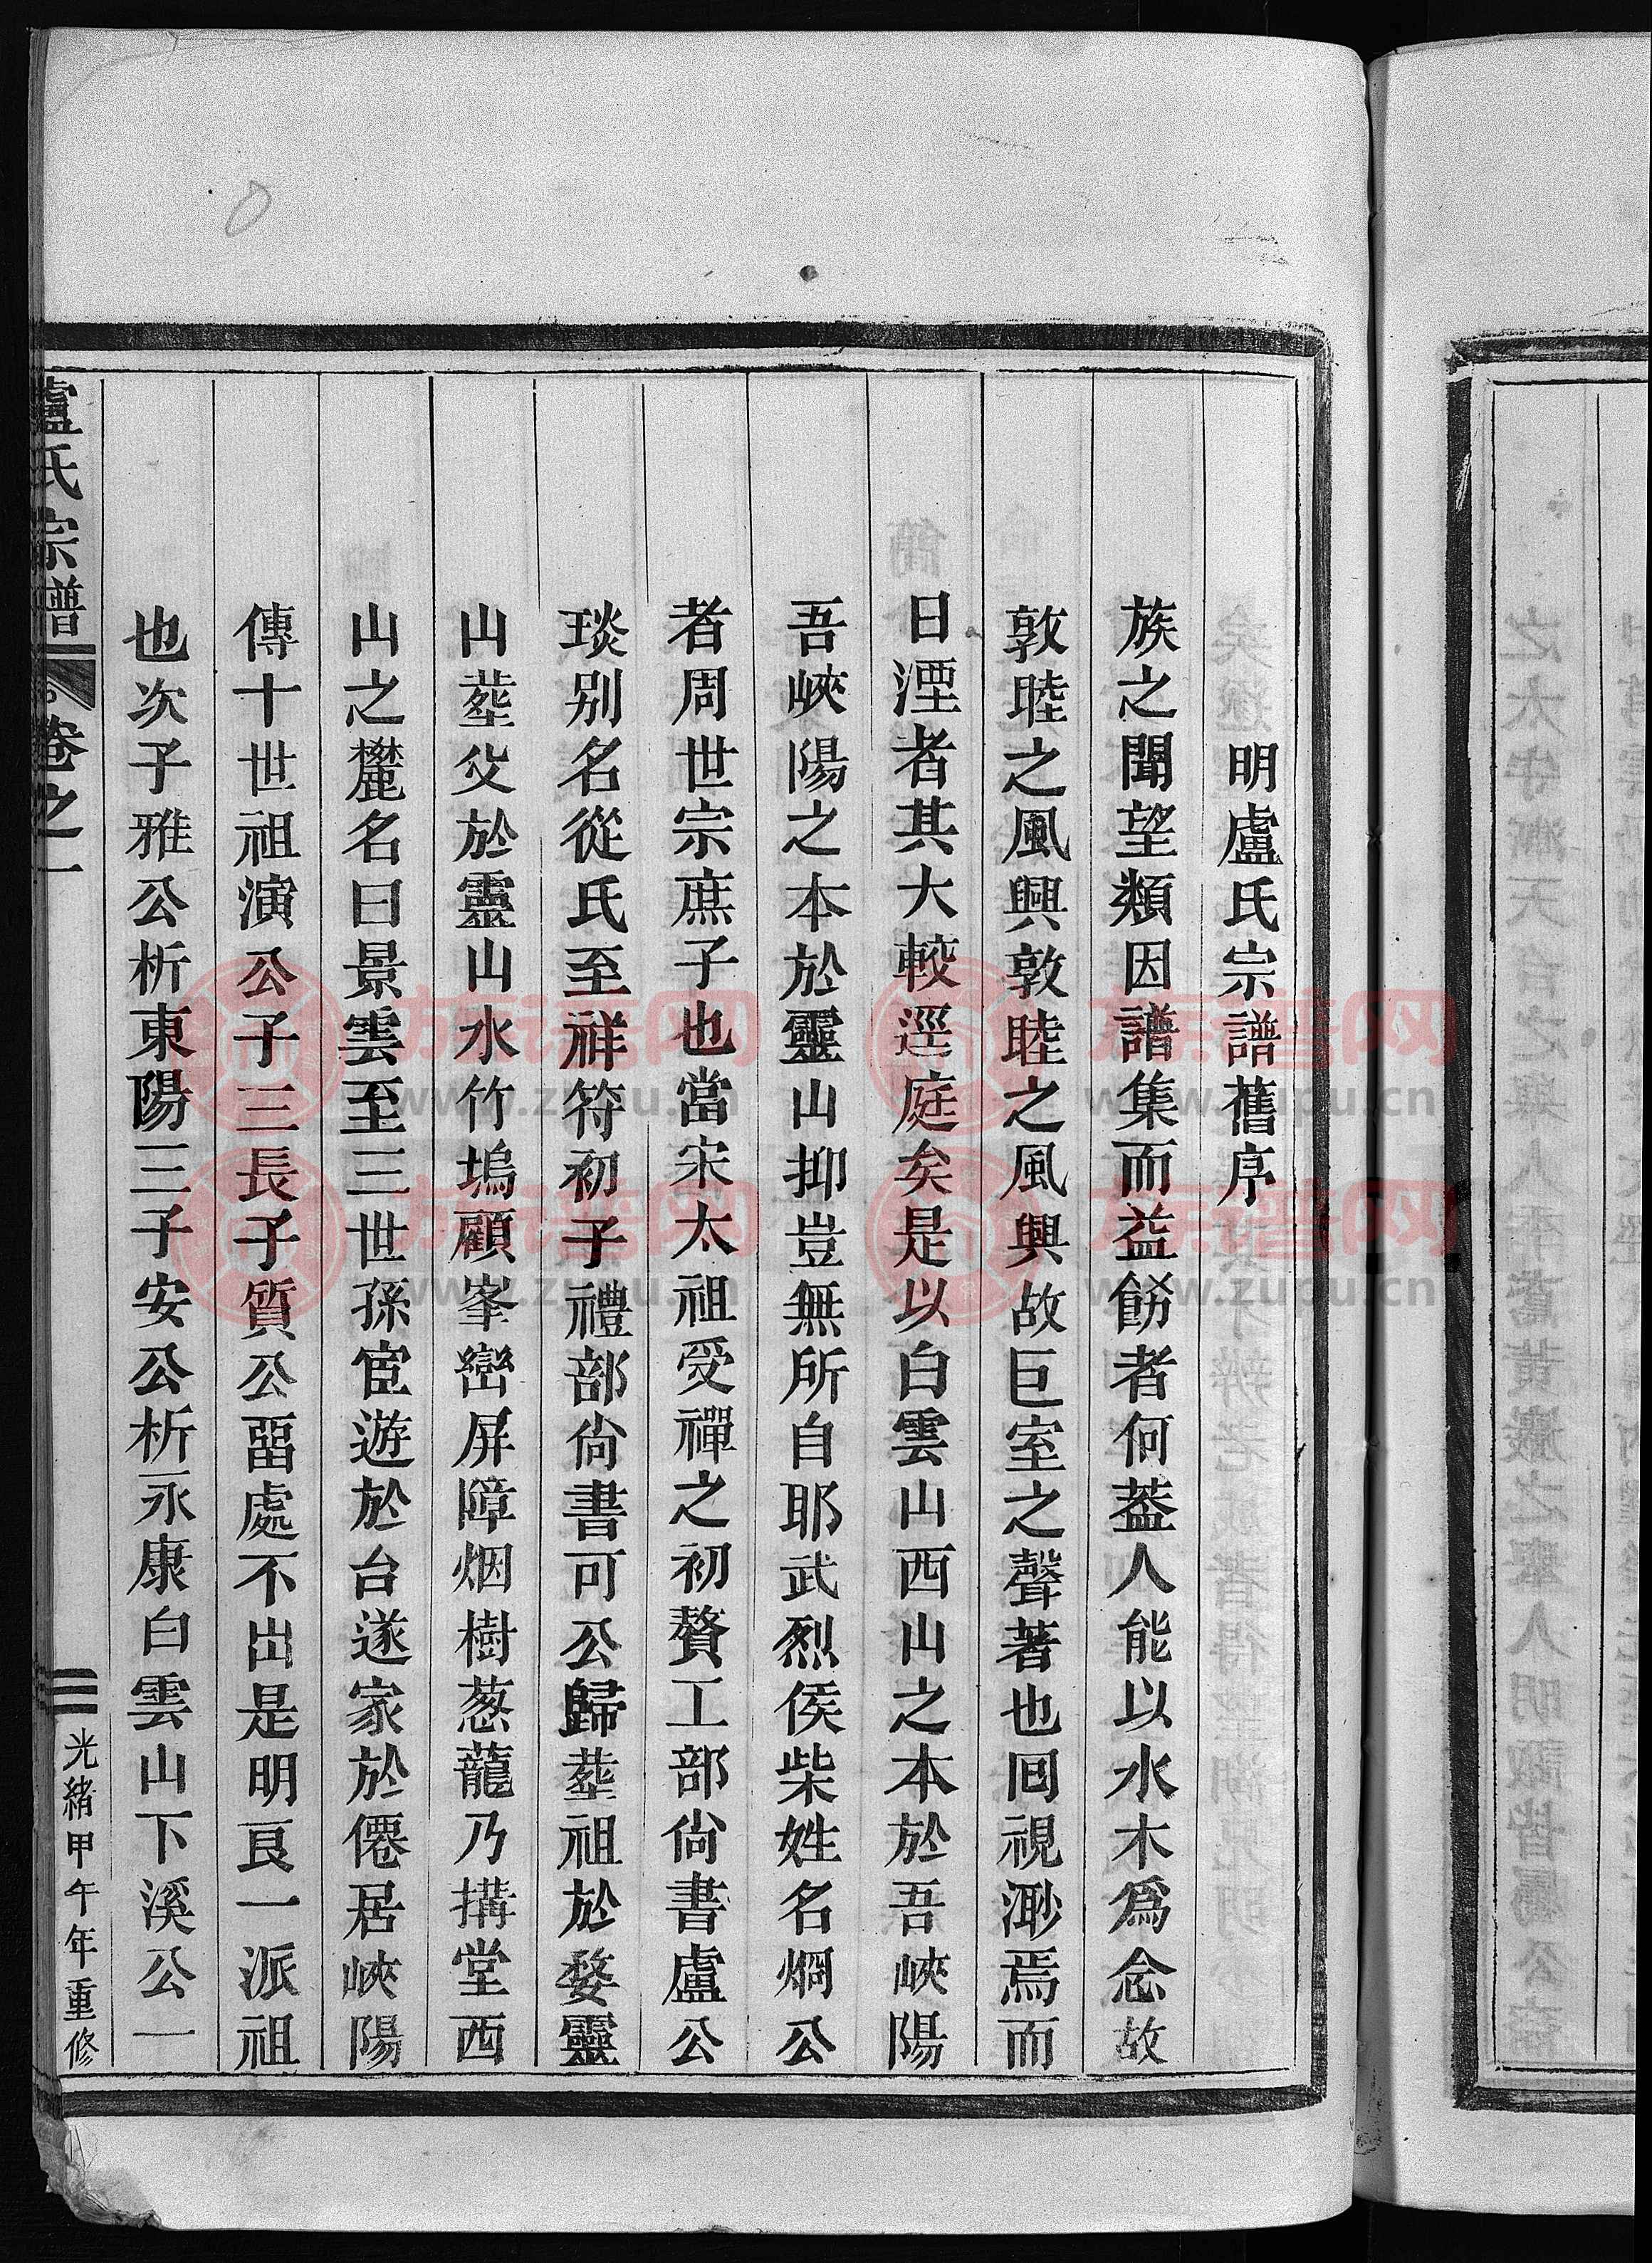 明盧氏宗譜舊序
族之聞望類因譜集而益餝者何葢人能以水木爲念故
敦睦之風興敦睦之風興故巨室之聲著也回視渺焉而
日湮者其大較逕庭矣是以白雲山西山之本於吾峽陽
吾峽陽之本於靈山抑豈無所自耶武烈侯柴姓名烱公
者周世宗庶子也當宋太祖受禪之初贅工部尙書盧公
琰别名從氏至祥符初子禮部尙書可公歸塟祖於婺靈
山塟父於靈山水竹塢顧峯巒屏障烟樹葱蘢乃搆堂西
山之麓名曰景雲至三世孫宦遊於台遂家於僊居峽陽
傳十世祖演公子三長子質公畱處不出是明良一派祖
也次子雅公析東陽三子安公析永康白雲山下溪公一
盧氏宗譜
卷之一
光緒甲午年重修
方族譜网
www.zupu.cn
方族譜网
www.zupu.cn
方族譜网
www.zupu.cn
方族譜网
www.zupu.cn